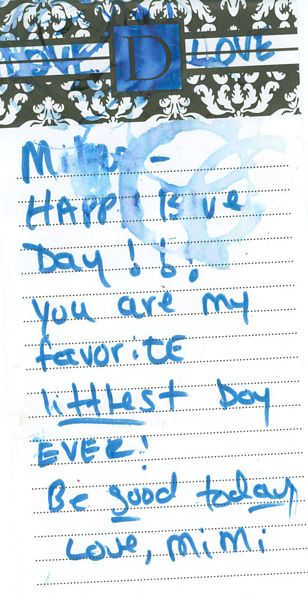 LOVE D LOVE
HAPPY
Day!!!
you are my
favoritE
littlest Boy
EVER!
Be good today
Love, MiMi